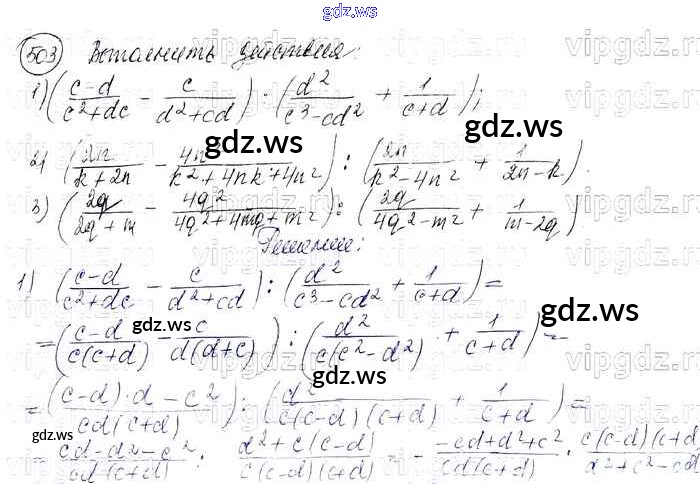 gdz.ws
503 Выполнить действия:
1) ((c-d)/(c²+dc) - c/(d²+cd)) : (d²/(c³-cd²) + 1/(c+d));
gdz.ws
2) (2n/(k+2n) - 4n²/(k²+4nk+4n²)) : (2n/(k²-4n²) + 1/(2n-k)).
3) (2q/(2q+m) - 4q²/(4q²+4mq+m²)) : (2q/(4q²-m²) + 1/(m-2q))
Решение:
1) ((c-d)/(c²+dc) - c/(d²+cd)) : (d²/(c³-cd²) + 1/(c+d)) =
= ((c-d)/(c(c+d)) - c/(d(d+c))) : (d²/(c(c²-d²)) + 1/(c+d)) =
= (((c-d)·d - c²)/(cd(c+d))) : (d²/(c(c-d)(c+d)) + 1/(c+d)) =
= (cd-d²-c²)/(cd(c+d)) : (d²+c(c-d))/(c(c-d)(c+d)) = - (-cd+d²+c²)/(cd(c+d)) · (c(c-d)(c+d)/(d²+c²-cd)
gdz.ws